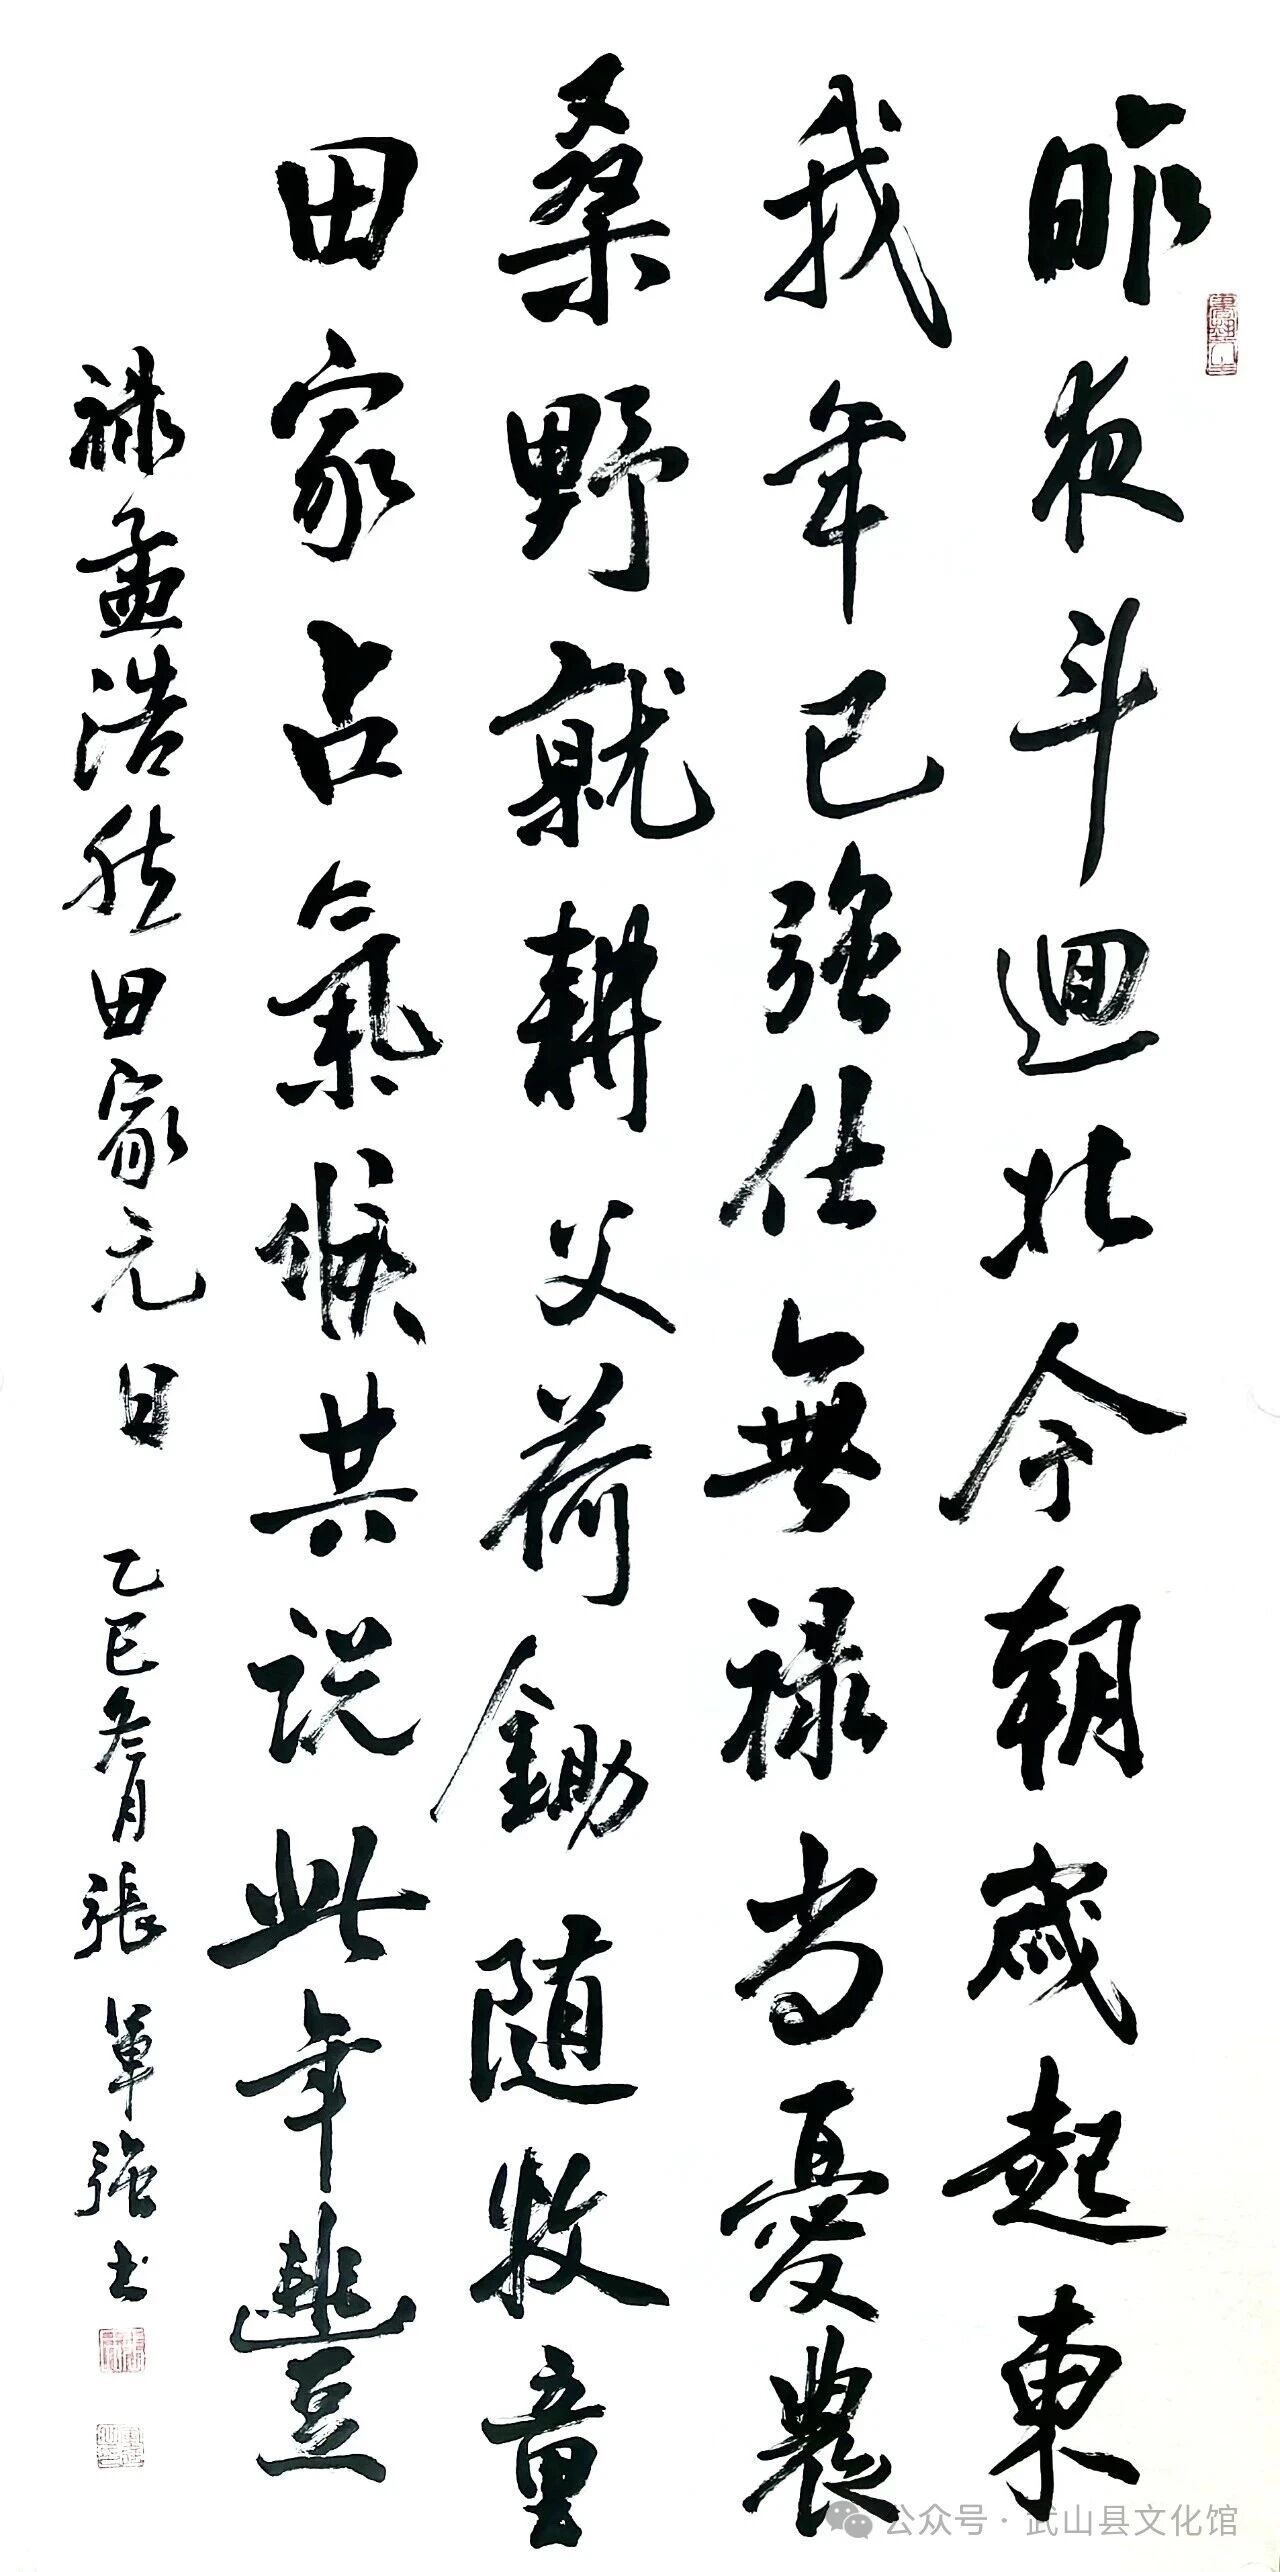 昨夜斗迴北今朝歲起東
我年已强仕無禄尚憂農
桑野就耕父荷鋤随牧童
田家占氣候共説此年豐
禄孟浩然田家元日 乙巳冬月張軍强书
公众号·武山县文化馆